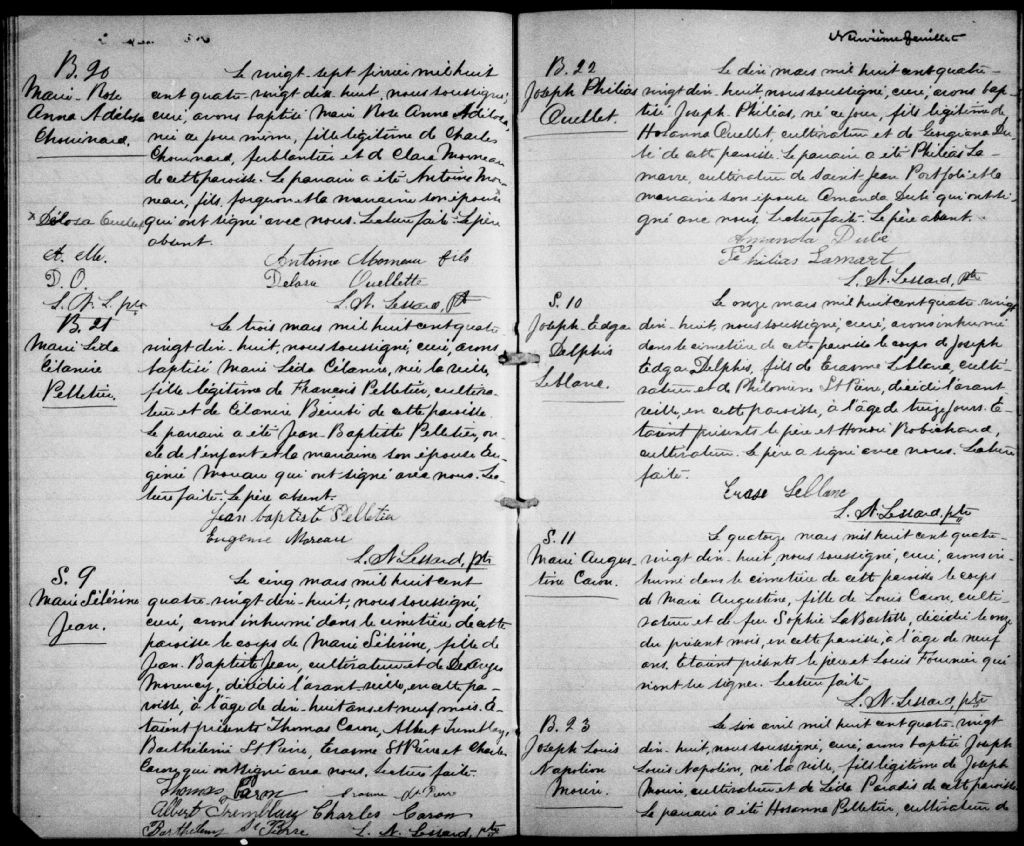 B. 20
Marie-Rose
Anna Adélosa
Chouinard.
Le vingt-sept février mil huit
cent quatre-vingt dix-huit, nous soussigné,
curé, avons baptisé Marie Rose Anna Adélosa,
née ce jour même, fille légitime de Charles
Chouinard, ferblantier et de Clara Morneau
de cette paroisse. Le parrain a été Antoine Mor-
neau, fils, forgeron et la marraine son épouse x
x Délosa Ouellet
qui ont signé avec nous. Lecture faite. Le père
absent.
A. M.
D. O.
L. N. L. ptre
Antoine Morneau fils
Delosa Ouellette
L. N. Lessard, ptr
B. 21
Marie Léda
Célanire
Pelletier.
Le trois mars mil huit cent quatre
vingt dix-huit, nous soussigné, curé, avons
baptisé Marie Léda Célanire, née la veille,
fille légitime de François Pelletier, cultiva-
teur et de Célanire Bérubé de cette paroisse.
Le parrain a été Jean-Baptiste Pelletier, on-
cle de l'enfant et la marraine son épouse Eu-
génie Moreau qui ont signé avec nous. Lec-
ture faite. Le père absent.
Jean baptiste Pelletier
Eugénie Moreau
L. N. Lessard, ptr
S. 9
Marie Sélérine
Jean.
Le cinq mars mil huit cent
quatre-vingt dix-huit, nous soussigné,
curé, avons inhumé dans le cimetière de cette
paroisse le corps de Marie Sélérine, fille de
Jean-Baptiste Jean, cultivateur et de Desanges
Morency, décédée l'avant-veille, en cette pa-
roisse, à l'âge de dix-huit ans et neuf mois. E-
taient présents Thomas Caron, Albert Tremblay,
Barthélemi St Pierre, Erasme St Pierre et Charles
Caron, qui ont signé avec nous. Lecture faite.
Thomas Caron
Erasme St Pierre
Albert Tremblay Charles Caron
Barthelemy St Pierre L. N. Lessard, ptr
Neuvième feuillet
B. 22
Joseph Philias
Ouellet.
Le dix mars mil huit cent quatre-
vingt dix-huit, nous soussigné, curé, avons bap-
tisé Joseph Philias, né ce jour, fils légitime de
Hosanna Ouellet, cultivateur et de Georgiana Du-
bé de cette paroisse. Le parrain a été Philias La-
marre, cultivateur de Saint Jean Port Joli et la
marraine son épouse Amanda Dubé qui ont si-
gné avec nous. Lecture faite. Le père absent.
Amanda Dubé
Philias Lamart
L. N. Lessard, ptr
S. 10
Joseph-Edgar
Delphis
Leblanc.
Le onze mars mil huit cent quatre-vingt
dix-huit, nous soussigné, curé, avons inhumé
dans le cimetière de cette paroisse le corps de Joseph
Edgar Delphis, fils de Erasme Leblanc, culti-
vateur et de Philomène St Pierre, décédé l'avant
veille, en cette paroisse, à l'âge de treize jours. E-
taient présents le père et Honoré Robichaud,
cultivateur. Le père a signé avec nous. Lecture
faite.
Erase Leblanc
L. N. Lessard, ptr
S. 11
Marie Augus-
tine Caron.
Le quatorze mars mil huit cent quatre-
vingt dix-huit, nous soussigné, curé, avons in-
humé dans le cimetière de cette paroisse le corps
de Marie Augustine, fille de Louis Caron, culti-
vateur et de feu Sophie LaBastille, décédée le onze
du présent mois, en cette paroisse, à l'âge de neuf
ans. Etaient présents le père et Louis Fournier qui
n'ont su signer. Lecture faite.
L. N. Lessard, ptr
B. 23
Joseph Louis
Napoléon
Morin.
Le six avril mil huit cent quatre-vingt
dix-huit, nous soussigné, curé, avons baptisé Joseph
Louis Napoléon, né la veille, fils légitime de Joseph
Morin, cultivateur et de Léda Paradis de cette paroisse.
Le parrain a été Hosanna Pelletier, cultivateur de